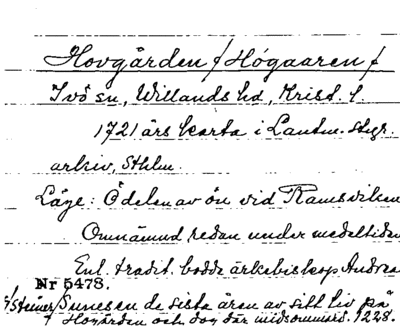 Hovgården / Högaaren /
Ivö sn, Willands hd, Krist. l.
1721 års karta i Lantm. styr.
arkiv, Sthlm.
Läge: Ö delen av ön vid Ramsviken
Omnämnd redan under medeltiden
Enl. tradit. bodde ärkebiskop Andrea
Nr 5478.
Sunesen de sista åren av sitt liv på
Hovgården och dog där midsommars. 1228.